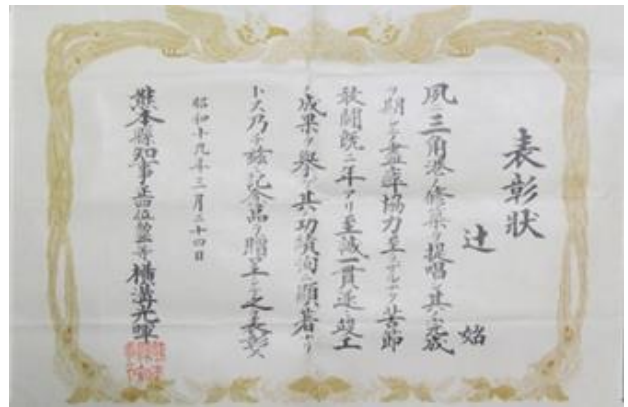 表彰狀
辻 始
夙ニ三角港ノ修築ヲ提唱シ其ノ完成
ヲ期シ盡率協力至ラザルナク苦節
敢鬪既ニ年アリ至誠一貫遂ニ竣工
ノ成果ヲ擧グ其功績洵ニ顯著ナリ
トス乃チ玆ニ記念品ヲ贈呈シ之ヲ表彰ス
昭和十九年三月二十四日
熊本縣知事正五位勳四等橫溝光暉